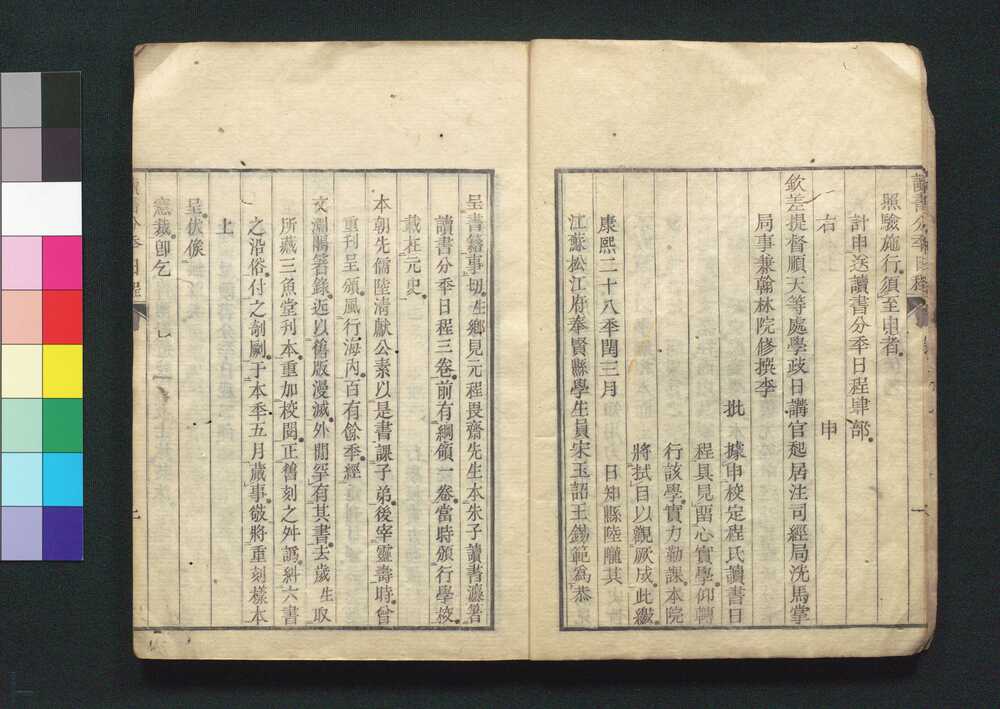 讀書分秊日程
照驗施行須至申者
計申送讀書分秊日程肆部
右　　申
欽差提督順天等處學政日講官起居注司經局洗馬掌
局事兼翰林院修撰李
批
據申校定程氏讀書日
程具見畱心實學仰轉
行該學實力勸課本院
將拭目以觀厥成此繳
康熙二十八秊閏三月　日知縣陸隴其
江蘇松江府奉賢縣學生員宋玉詔王錫範爲恭
呈書籍事切生鄉見元程畏齋先生本朱子讀書灋著
讀書分秊日程三卷前有綱領一卷當時頒行學校
載在元史
本朝先儒陸淸獻公素以是書課子弟後宰靈壽時曾
重刊呈頒風行海內百有餘秊經
文瀾閣箸錄近以舊版漫滅外閒罕有其書去歲生取
所藏三魚堂刊本重加校閱正舊刻之舛譌糾六書
之沿俗付之剞劂于本秊五月蕆事敬將重刻樣本
上
呈伏候
憲裁卽乞
讀書分秊日程